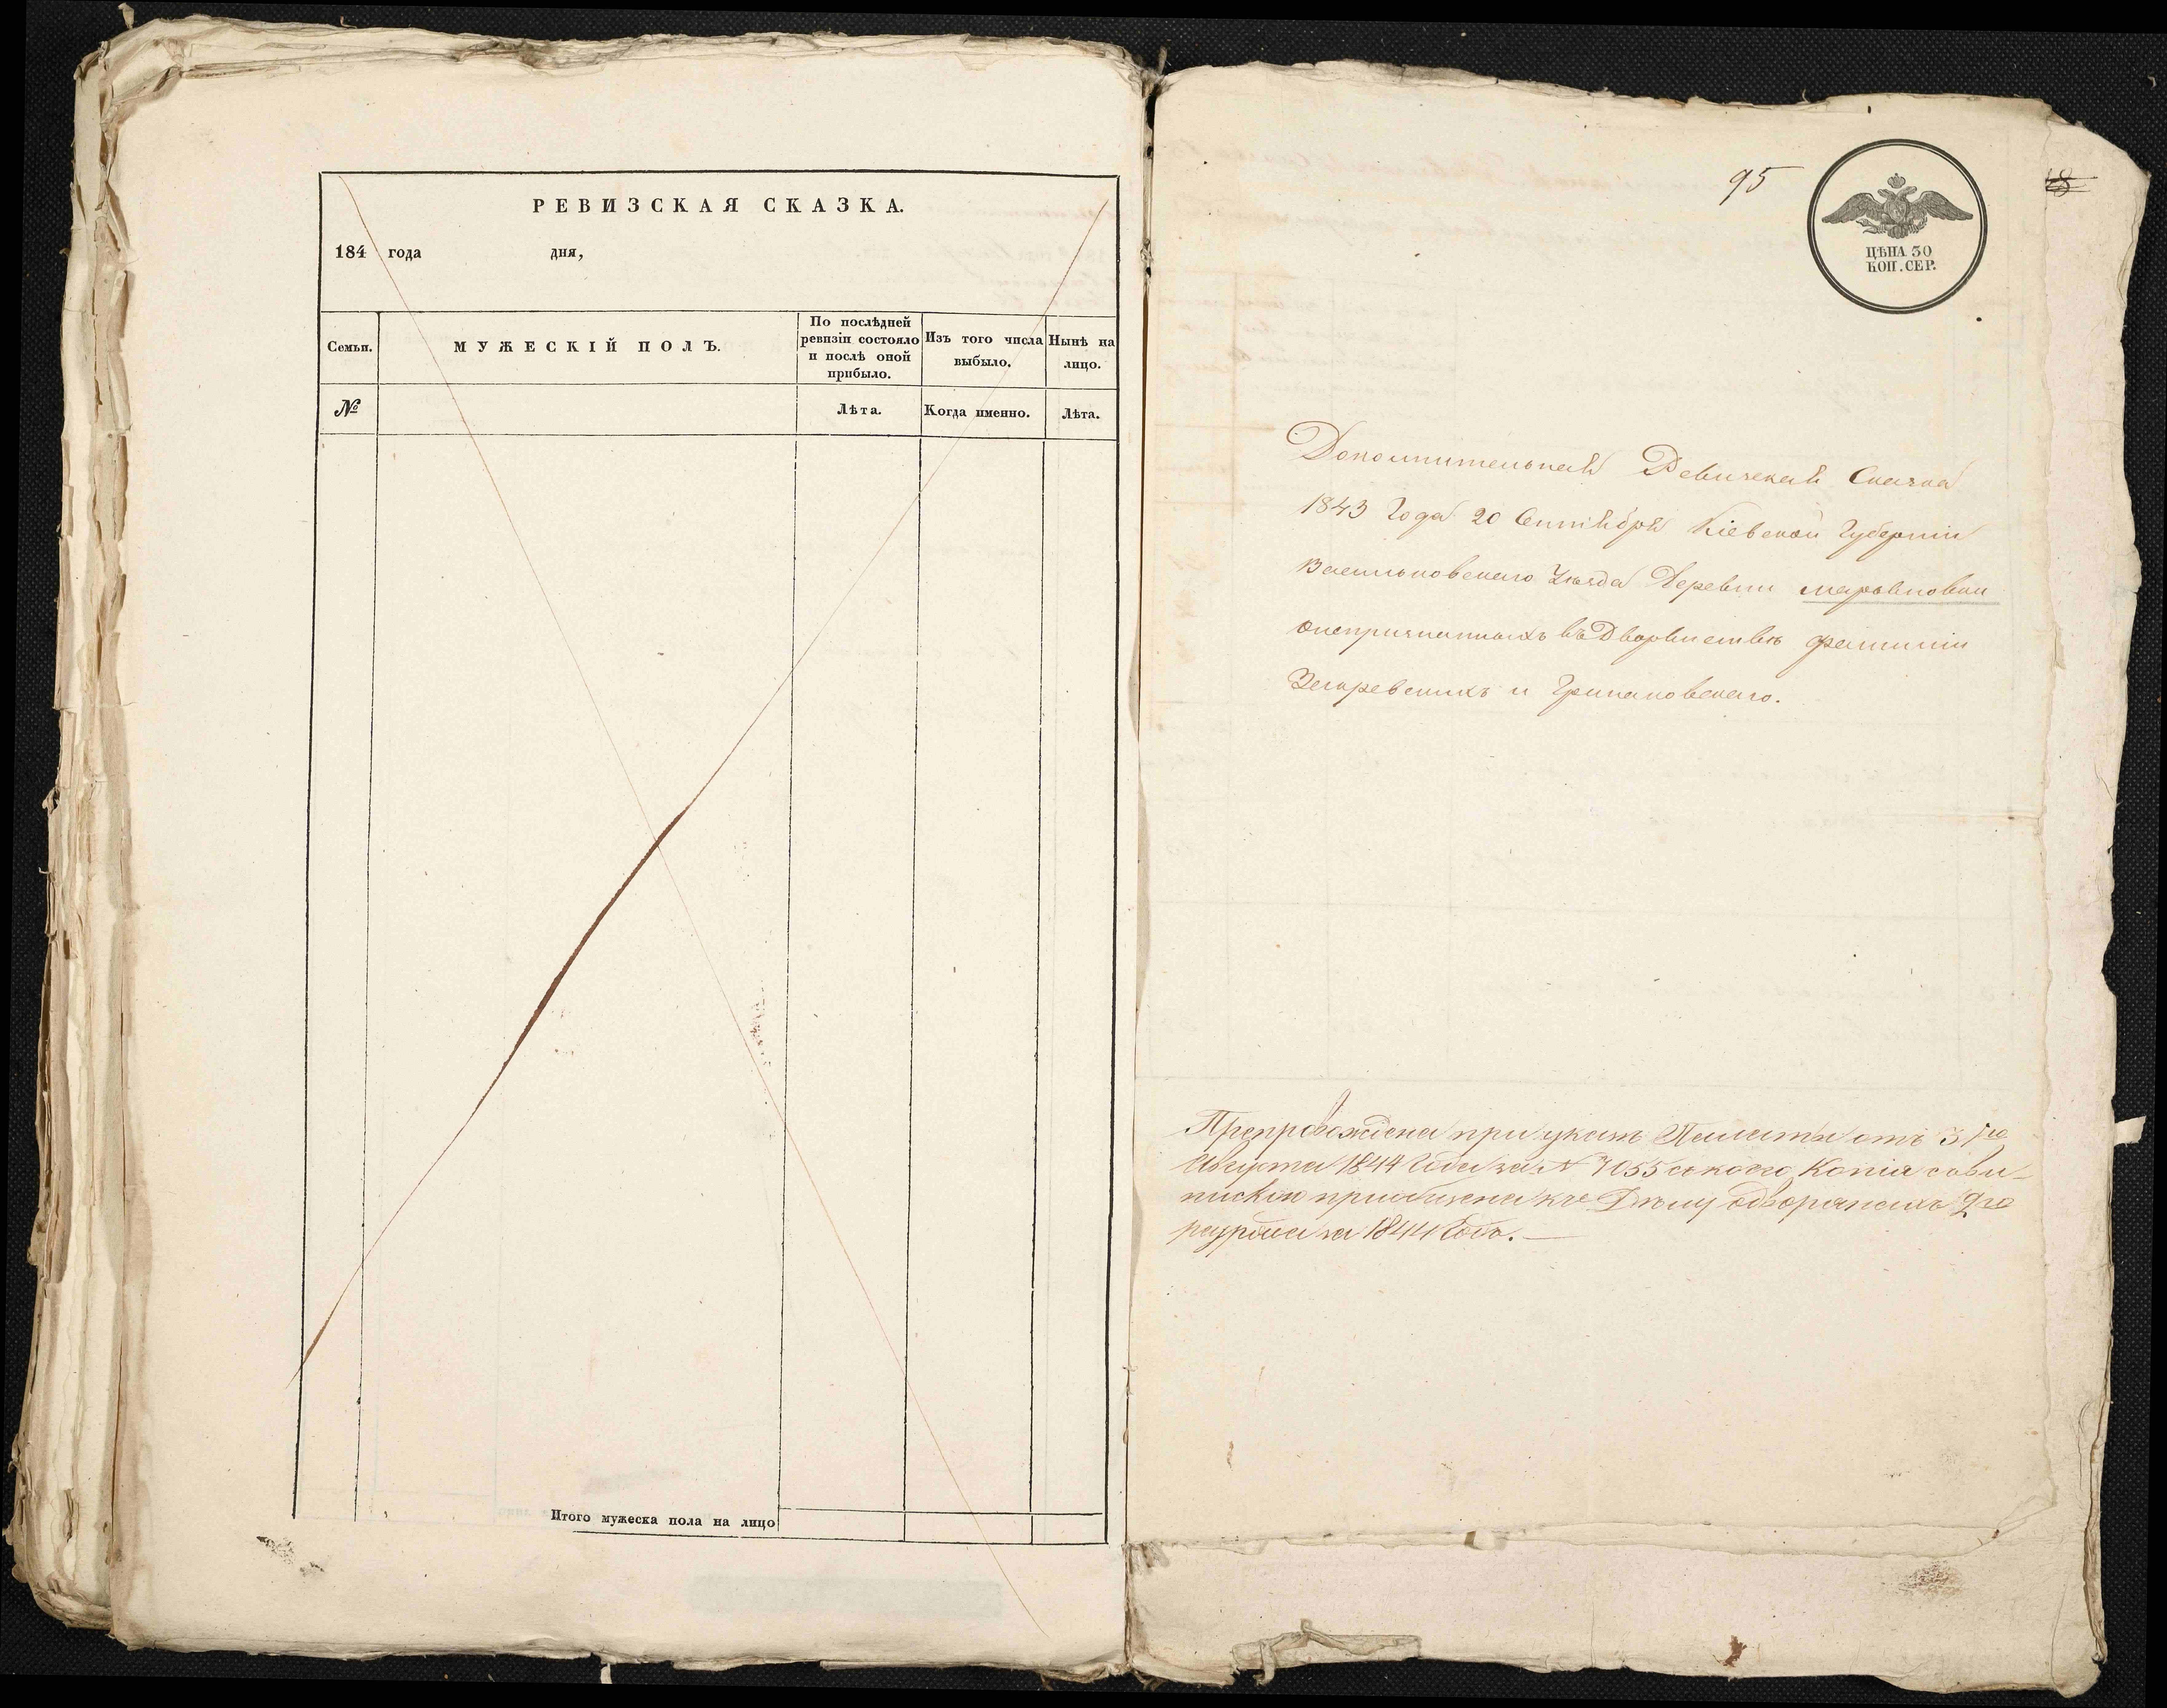 РЕВИЗСКАЯ СКАЗКА.
184 года дня,
Семьи.
МУЖЕСКІЙ ПОЛЪ.
По послѣдней
ревизіи состояло
и послѣ оной
прибыло.
Изъ того числа
выбыло.
Нынѣ на
лицо.
№
Лѣта.
Когда именно.
Лѣта.
Итого мужеска пола на лицо
95
ЦѢНА 30
КОП. СЕР.
Дополнительная Ревизская Сказка
1843 Года 20 Сентября Кіевской Губерніи
Васильковскаго Уѣзда Деревни марьяновки
онепризнанныхъ въ Дворянствѣ фамиліи
и
Препровождена при указѣ Палаты отъ 31го
Августа 1844 Года за № 7055 съ коего Копія
приобщена къ Дѣлу одворянахъ 2го
разряда за 1844 Годъ.